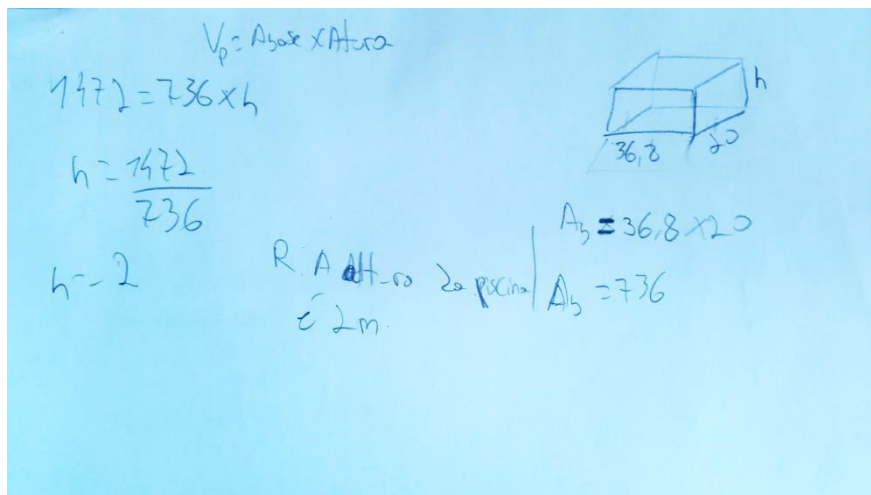 Vp = Abase x Altura
1472 = 736 x h
h = 1472
736
h = 2
R: A Altura da piscina
é 2m.
h
36,8
20
Ab = 36,8 x 20
Ab = 736